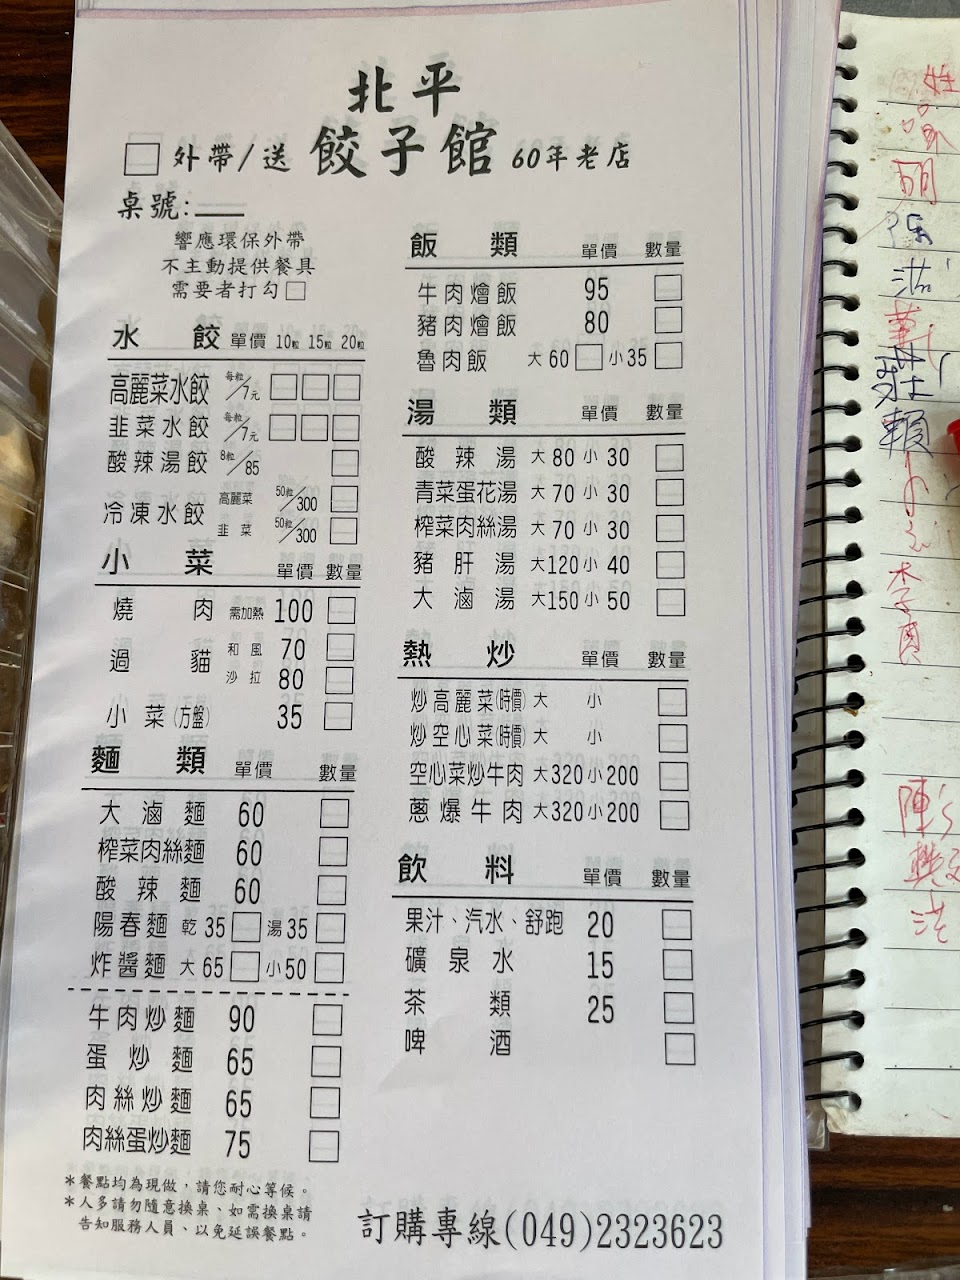 北平
外帶/送 餃子館 60年老店
桌號:
響應環保外帶
不主動提供餐具
需要者打勾
水餃 單價 10粒 15粒 20粒
高麗菜水餃 每粒/7元
韭菜水餃 每粒/7元
酸辣湯餃 8粒/85
冷凍水餃 高麗菜 50粒/300
韭菜 50粒/300
小菜 單價 數量
燒肉 需加熱 100
過貓 和風 70
沙拉 80
小菜(方盤) 35
麵類 單價 數量
大滷麵 60
榨菜肉絲麵 60
酸辣麵 60
陽春麵 乾35 湯35
炸醬麵 大65 小50
牛肉炒麵 90
蛋炒麵 65
肉絲炒麵 65
肉絲蛋炒麵 75
*餐點均為現做,請您耐心等候。
*人多請勿隨意換桌、如需換桌請
告知服務人員、以免延誤餐點。
飯類 單價 數量
牛肉燴飯 95
豬肉燴飯 80
魯肉飯 大60 小35
湯類 單價 數量
酸辣湯 大80 小30
青菜蛋花湯 大70 小30
榨菜肉絲湯 大70 小30
豬肝湯 大120 小40
大滷湯 大150 小50
熱炒 單價 數量
炒高麗菜(時價) 大 小
炒空心菜(時價) 大 小
空心菜炒牛肉 大320 小200
蔥爆牛肉 大320 小200
飲料 單價 數量
果汁、汽水、舒跑 20
礦泉水 15
茶類 25
啤酒
訂購專線(049)2323623
胡
賴